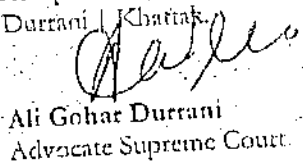 Durrani | Khattak.
Ali Gohar Durrani
Advocate Supreme Court.